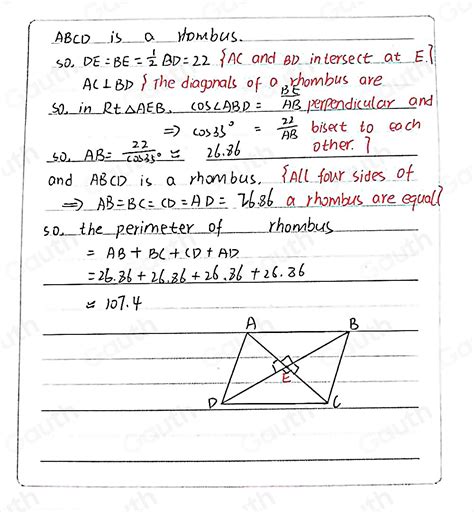 ABCD is a rhombus.
so. DE=BE=½BD=22 {AC and BD intersect at E.}
AC⊥BD } The diagonals of a rhombus are
so, in Rt△AEB, cos∠ABD = BE/AB perpendicular and
⇒ cos35° = 22/AB bisect to each
so, AB= 22/cos35° ≈ 26.86 other. }
and ABCD is a rhombus. {All four sides of
⇒ AB=BC=CD=AD= 26.86 a rhombus are equal}
so. the perimeter of rhombus
= AB+BC+CD+AD
=26.86+26.86+26.86+26.86
≈ 107.4
A B
E
D C